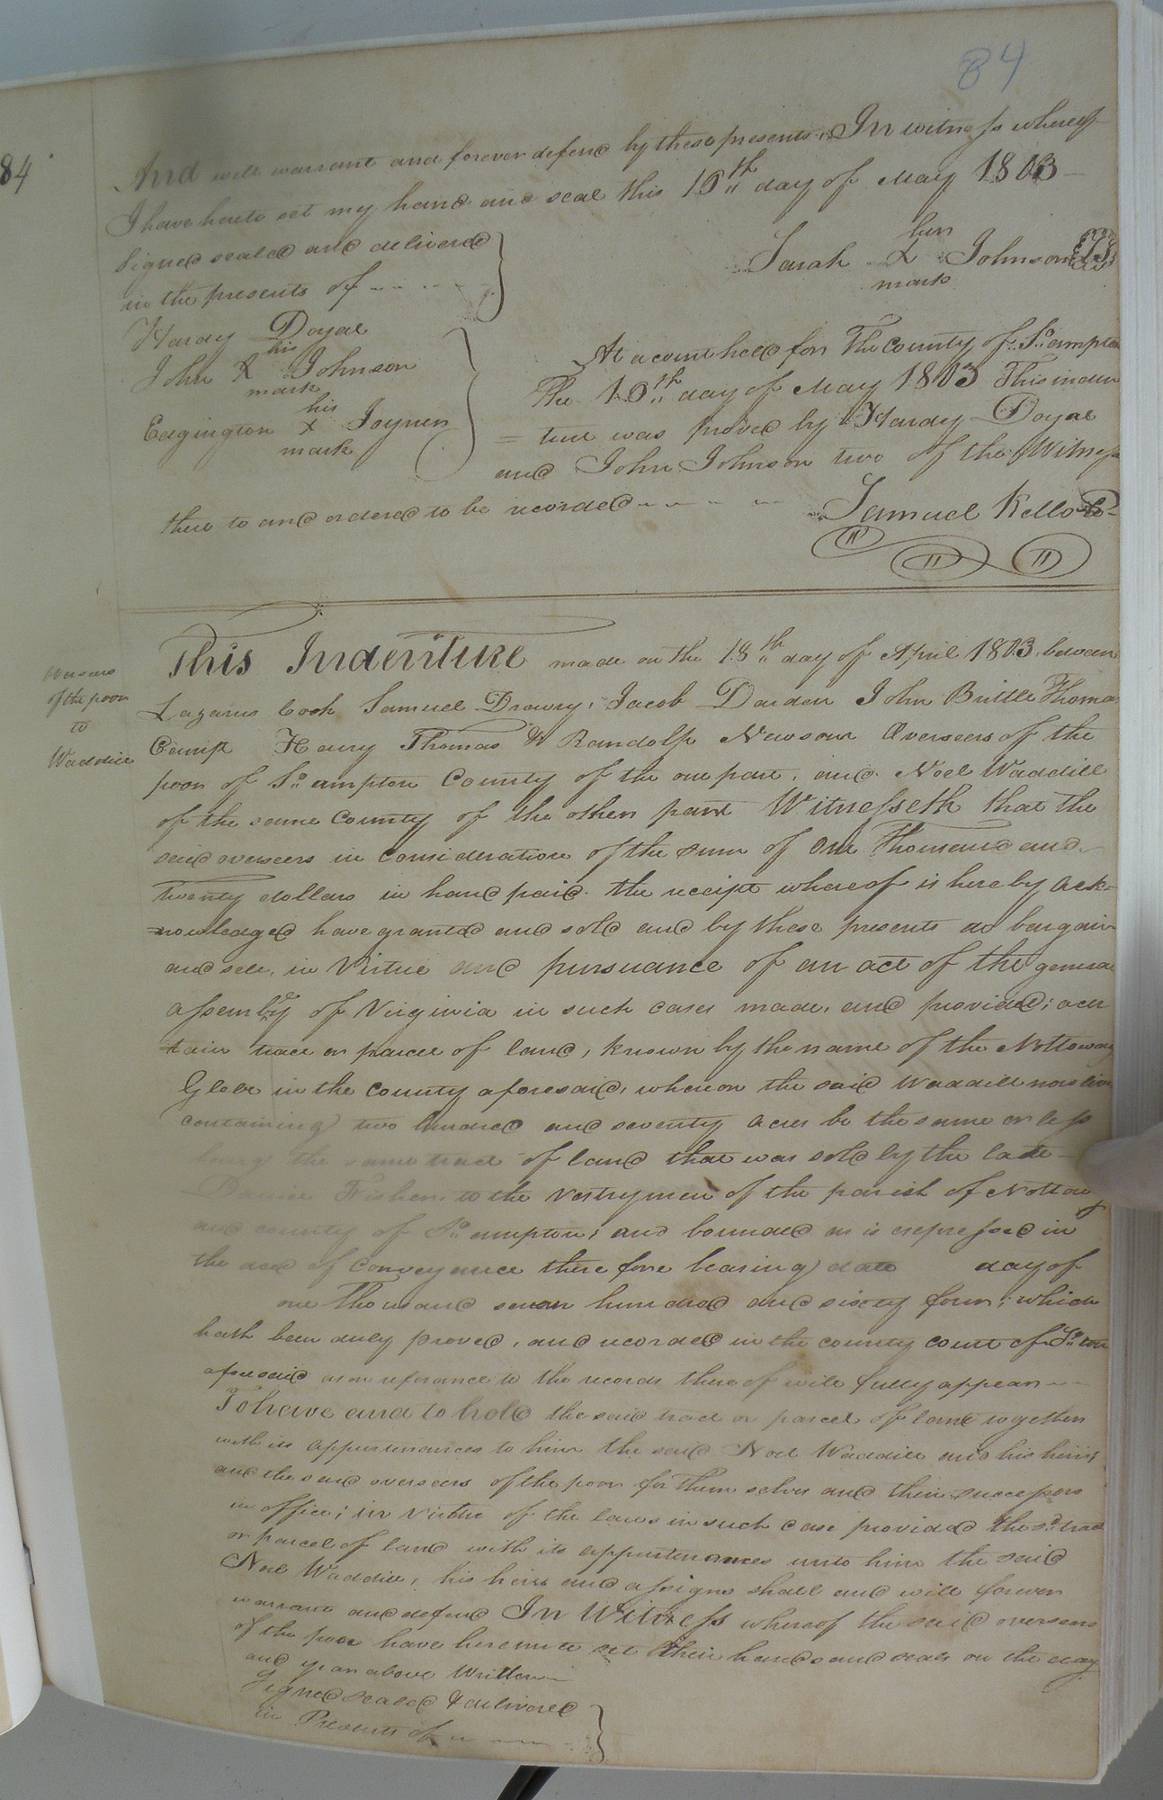 84
84
And will warrant and forever defend by these presents. In witness whereof
I have hereto set my hand and seal this 16th day of May 1803 —
Signed sealed and delivered
in the presents of
her
Sarah X Johnson LS
mark
Hardy Doyal
his
John X Johnson
mark
his
Edgington X Joyner
mark
At a court held for The County of So.ampton
The 16th day of May 1803 This inden
= ture was proved by Hardy Doyal
and John Johnson two of the Witness
there to and ordered to be recorded
Samuel Kello
This Indenture made on the 18th day of April 1803 between
Overseers
of the poor
to
Waddill
Lazarus Cook Samuel Drewry, Jacob Darden John Brittle Thomas
Henry Thomas & Randolph Newsom Overseers of the
poor of So.ampton County of the one part, and Noel Waddill
of the same County of the other part Witnesseth that the
said overseers in consideration of the sum of one Thousand and
twenty dollars in hand paid the receipt whereof is hereby ack=
=nowledged have granted and sold and by these presents do bargain
and sell, in Virtue and pursuance of an act of the general
assembly of Virginia in such cases made, and provided; a cer
tain tract or parcel of land, known by the name of the Nottoway
Glebe in the county aforesaid, whereon the said Waddill now lives
containing two hundred and seventy acres be the same or less
being the same tract of land that was sold by the late
Fisher to the Vestrymen of the parish of Nottoway
and county of So.ampton; and bounded as is expressed in
the deed of Conveyance therefore bearing date day of
one Thousand seven hundred and sixty four; which
hath been duly proved, and recorded in the county court of
aforesaid as on reference to the records thereof will fully appear
To have and to hold the said tract or parcel of land together
with its appurtenances to him the said Noel Waddill and his heirs
and the said overseers of the poor for them selves and their successors
in office; in Virtue of the laws in such case provided the sd. tract
or parcel of land with its appurtenances unto him the said
Noel Waddill, his heirs and assigns shall and will forever
warrant and defend In Witness whereof the said overseers
of the poor have hereunto set their hands and seals on the day
and year above Written
Signed sealed & delivered
in Presents of